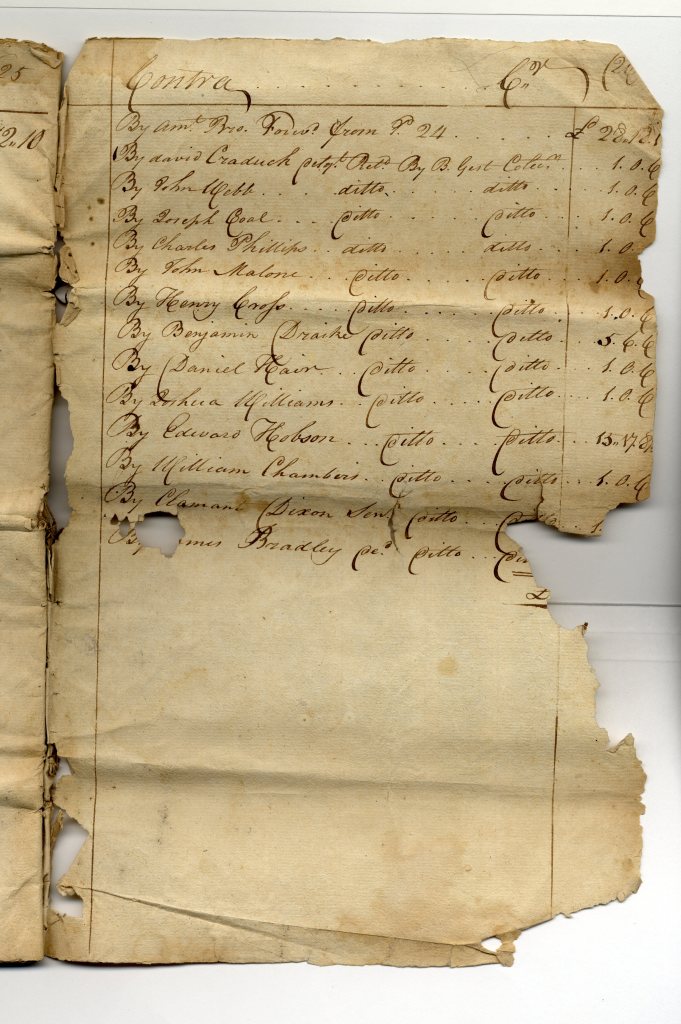 25
2 „ 10
Contra . . . . . . . . . . Cr. (25
By amt. Bro. Forwd. from P. 24 . . . . . £
By david Craduck delqt. Retd. By B. Gest Collr. . . . 1. 0. 6
By John Webb . . . ditto . . . . . ditto . . . 1. 0. 6
By Joseph Coal . . . ditto . . . . . ditto . . . 1. 0. 6
By Charles Phillips . . ditto . . . . . ditto . . . 1. 0.
By John Malone . . . ditto . . . . . ditto . . . 1. 0. 6
By Henry Cross . . . ditto . . . . . ditto . . . 1. 0. 6
By Benjamin Draske ditto . . . . . ditto . . . 5. 6. 6
By Daniel Hair . . . ditto . . . . . ditto . . . 1. 0. 6
By Joshua Williams . . . ditto . . . . . ditto . . . 1. 0. 6
By Edward Hobson . . . ditto . . . . . ditto . . . 13 „ 17.
By William Chambers . . ditto . . . . . ditto . . . 1. 0. 6
By Clamant Dixon Senr. ditto . . . . . ditto . . . 1.
By Bradley ditto
£